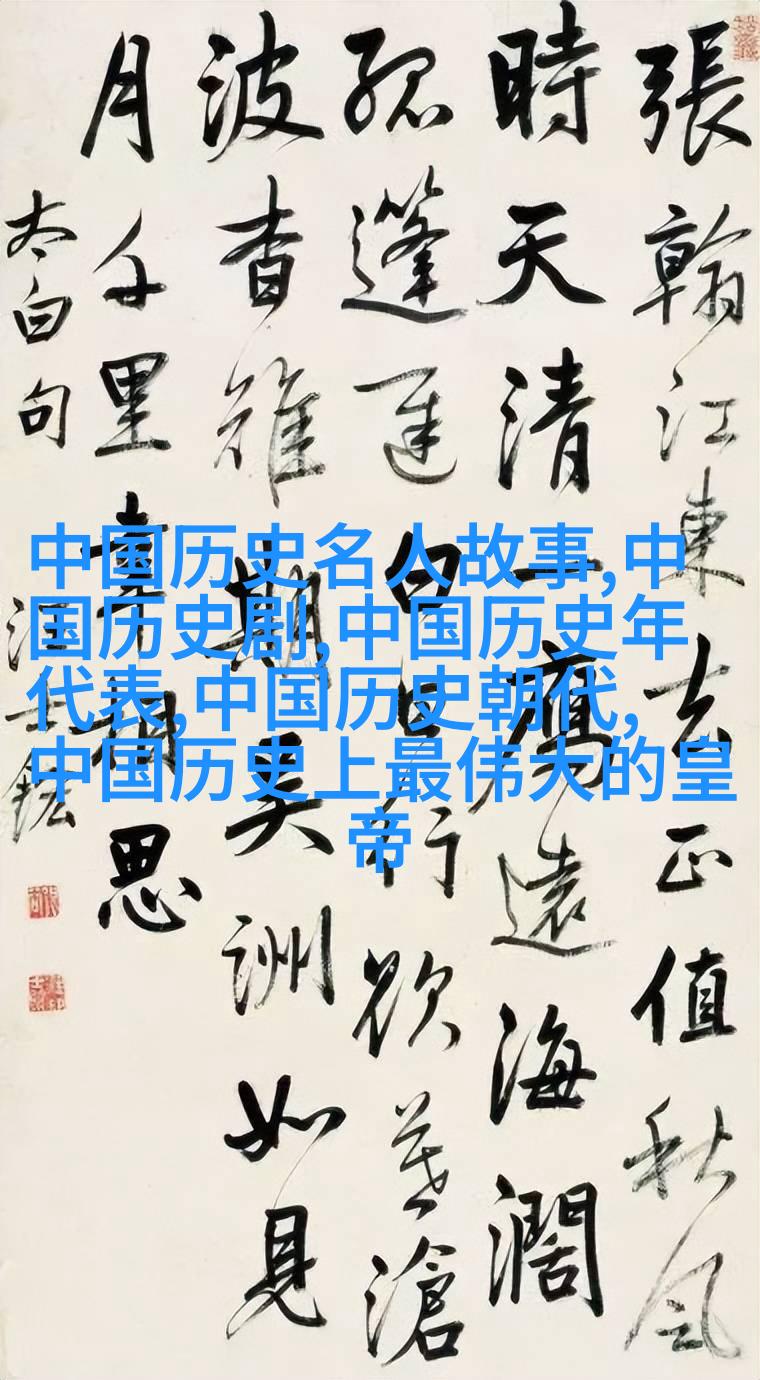 張翰江東去正值秋風
時天清一鴈遠海濶
孤篷遲白日行欲暮滄
波杳難期吳洲如見
月千里幸相思
太白句
汪士鋐
中国历史名人故事,中
国历史剧,中国历史年
代表,中国历史朝代,
中国历史上最伟大的皇
帝